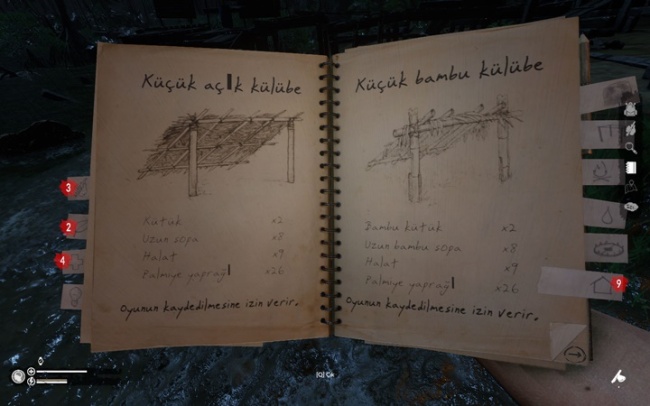 Küçük aç▌k külübe
Kütük x2
Uzun sopa x8
Halat x9
Palmiye yaprağ▌ x26
Oyunun kaydedilmesine izin verir.
Küçük bambu külübe
Bambu kütük x2
Uzun bambu sopa x8
Halat x9
Palmiye yaprağ▌ x26
Oyunun kaydedilmesine izin verir.
3
2
4
9